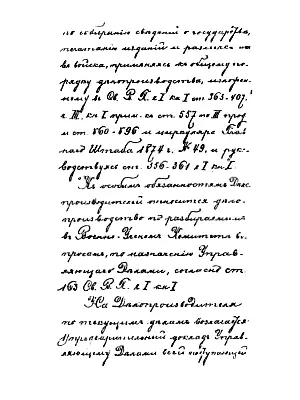 по собиранію свѣдѣній о государства,
печатанію изданій и разсылкѣ ихъ
въ войска, примѣняясь къ общему по-
рядку дѣлопроизводства, изложен-
ному въ Св. В. П. ч I кн I ст 363-407.
ч III, кн I прим. къ ст. 557 по III прод
и ст. 860-896 и циркуляра Глав
наго Штаба 1874 г. № 49, и рук-
водствуясь ст. 356-361 ч I кн I.
Къ особымъ обязанностямъ Дѣло
производителей относится дѣло-
производство по разбираемымъ
въ Военно-Ученомъ Комитетѣ во-
просамъ, по назначенію Управ-
ляющаго Дѣлами, согласно ст.
163 Св. В. П. ч I кн I
На Дѣлопроизводителя
по текущимъ дѣламъ возлагается
предварительный докладъ Управ-
ляющему Дѣлами всей поступающей